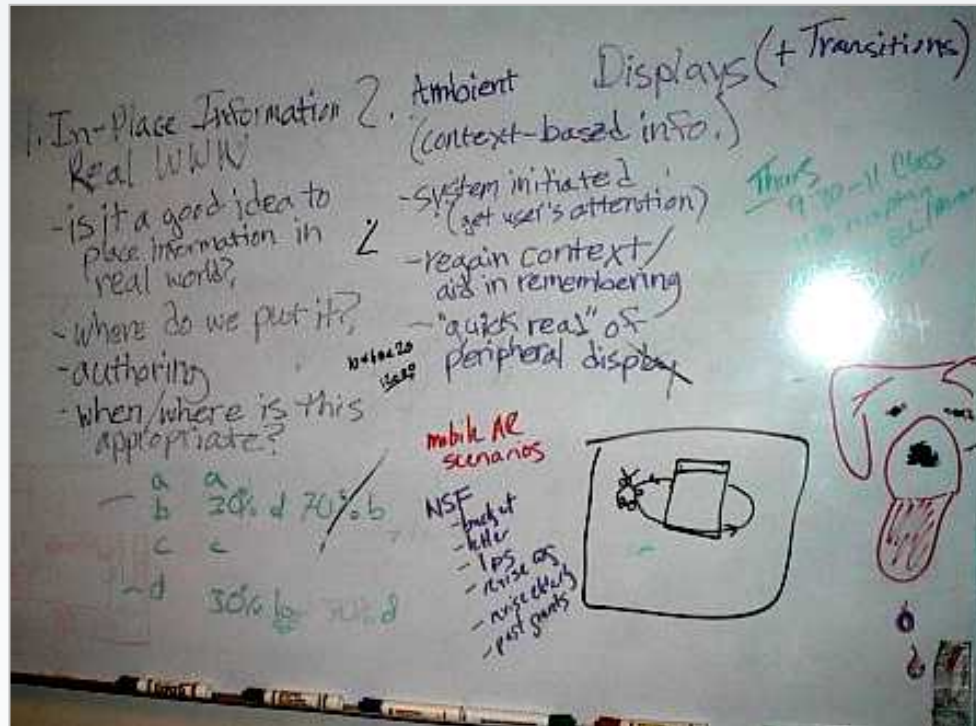 1. In-Place Information
Real WWW
- is it a good idea to
place information in
real world?
- where do we put it?
- authoring
- when/where is this
appropriate?
2. Ambient Displays (+ Transitions)
(context-based info.)
- system initiated
(get user's attention)
- regain context/
aid in remembering
- "quick read" of
peripheral display
Thurs
9:30-11 Class
a a
b 30% d 70% b
c c
- d 30% b 70% d
mobile AR
scenarios
NSF
- budget
- letter
- revise
- revise
- past grants